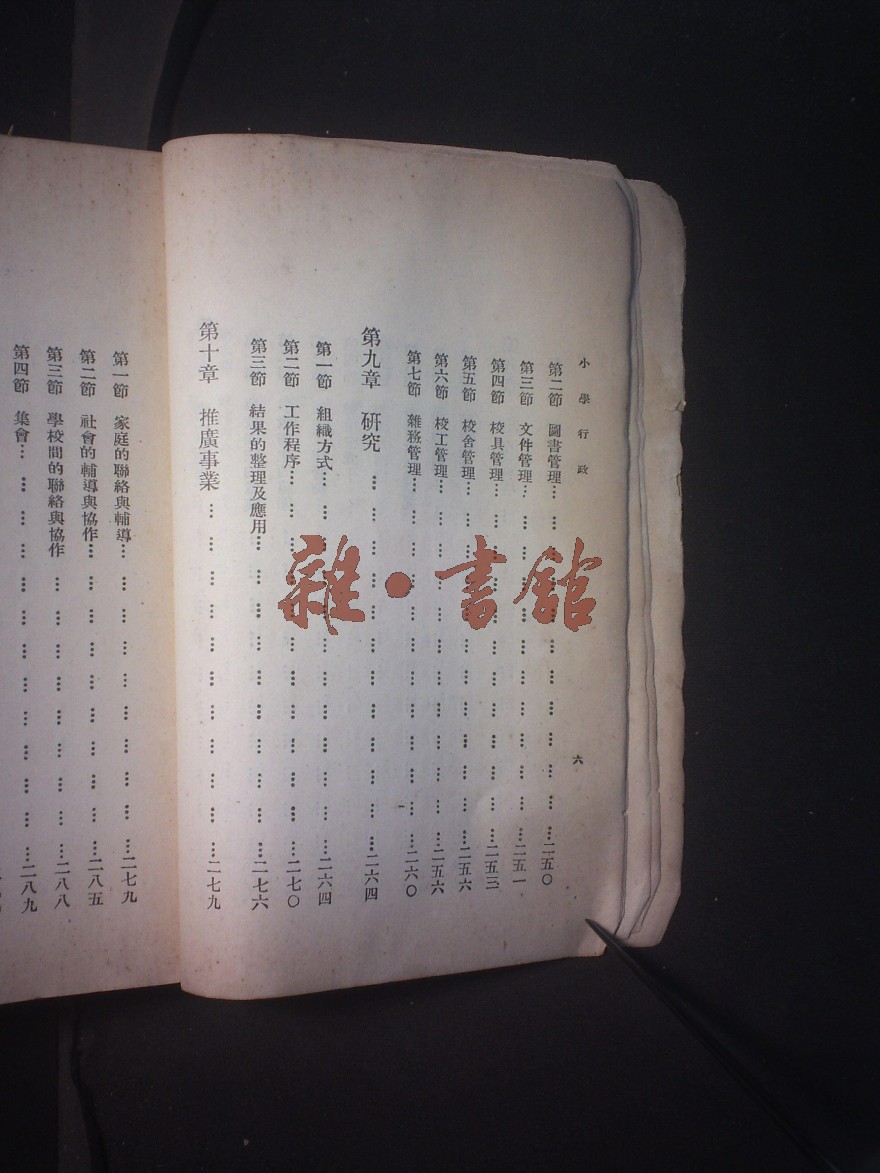 小學行政
六
第二節 圖書管理……………………………二五〇
第三節 文件管理……………………………二五一
第四節 校具管理……………………………二五三
第五節 校舍管理……………………………二五六
第六節 校工管理……………………………二五六
第七節 雜務管理……………………………二六〇
第九章 研究……………………………二六四
第一節 組織方式……………………………二六四
第二節 工作程序……………………………二七〇
第三節 結果的整理及應用……………………………二七六
第十章 推廣事業……………………………二七九
第一節 家庭的聯絡與輔導……………………………二七九
第二節 社會的輔導與協作……………………………二八五
第三節 學校間的聯絡與協作……………………………二八八
第四節 集會……………………………二八九
雜·書館